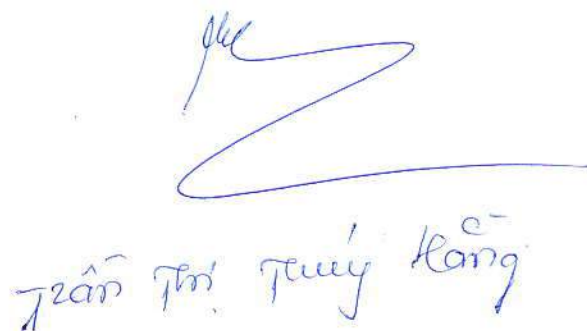 Trần Thị Thuý Hằng